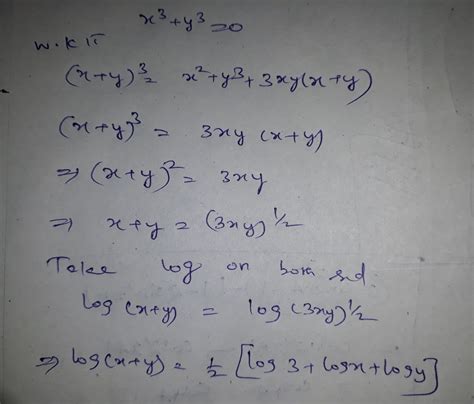 x³+y³=0
W.K.T
(x+y)³= x²+y³+3xy(x+y)
(x+y)³ = 3xy (x+y)
⇒ (x+y)² = 3xy
⇒ x+y = (3xy)^1/2
Take log on both sid.
log(x+y) = log(3xy)^1/2
⇒ log(x+y) = 1/2 [log 3 + logx + logy]